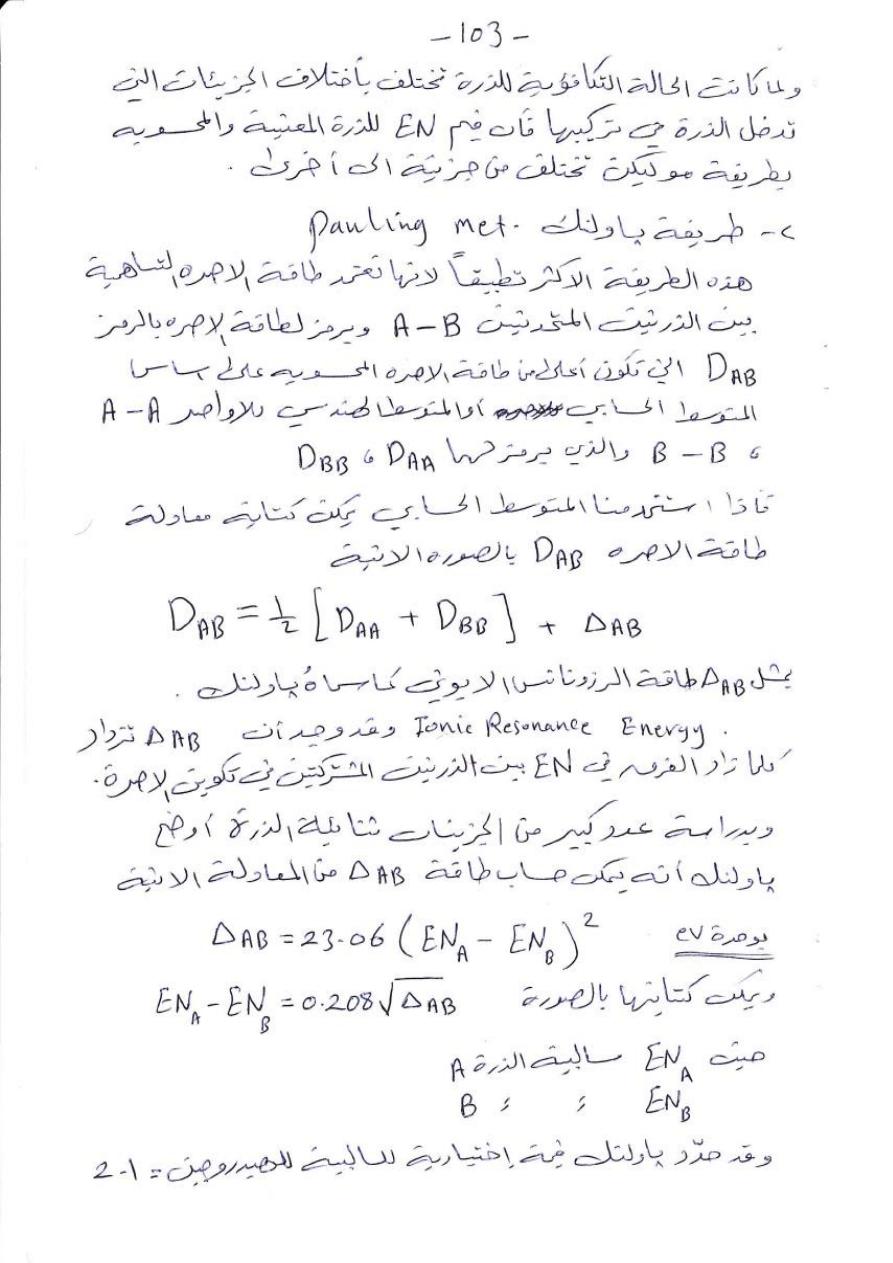 -103-
ولما كانت الحالة التكافؤية للذرة تختلف بأختلاف الجزيئات التي
تدخل الذرة في تركيبها فأن قيم EN للذرة المعنية والمحسوبه
بطريقة موليكن تختلف من جزيئة الى أخرى .
٢- طريقة پاولنك Pauling met.
هذه الطريقة الاكثر تطبيقاً لانها تعتمد طاقة الاصره التساهمية
بين الذرتين المتحدتين A-B ويرمز لطاقة الاصره بالرمز
DAB التي تكون أعلى من طاقة الاصره المحسوبه على اساس
المتوسط الحسابي أو المتوسط الهندسي للاواصر A-A
، B-B والذي يرمز لهما DAA ، DBB
فأذا استخدمنا المتوسط الحسابي يمكن كتابة معادلة
طاقة الاصره DAB بالصوره الاتية
DAB = ½ [DAA + DBB] + ΔAB
يمثل ΔAB طاقة الرزونانس الايوني كما سماهُ پاولنك .
Ionic Resonance Energy . وقد وجد أن ΔAB تزداد
كلما زاد الفرق في EN بين الذرتين المشتركتين في تكوين الاصرة.
وبدراسة عدد كبير من الجزيئات ثنائية الذرة أوضح
پاولنك أنه يمكن حساب طاقة ΔAB من المعادلة الاتية
ΔAB = 23.06 (ENA - ENB)² بوحدة ev
ويمكن كتابتها بالصورة ENA - ENB = 0.208√ΔAB
حيث ENA سالبية الذرة A
ENB ؛ ؛ B
وقد حدّد پاولنك قيمة إختيارية لسالبية الهيدروجين = 2.1